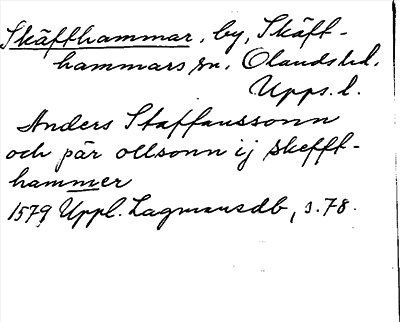 Skäfthammar, by, Skäft-
hammars sn. Olands hd.
Upps. l.
Anders Staffanssonn
och pär ollsonn ij skefft-
hammer
1579 Uppl. Lagmansdb, s. 78.